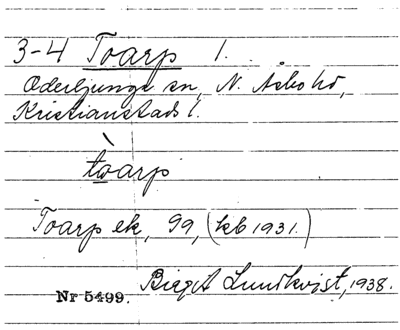 3-4 Toarp 1.
Oderljunga sn, N. Åsbo hd,
Kristianstads l.
tòarp
Toarp ek, 99, (kb 1931.)
Birgit Lundkvist, 1938.
Nr 5499.